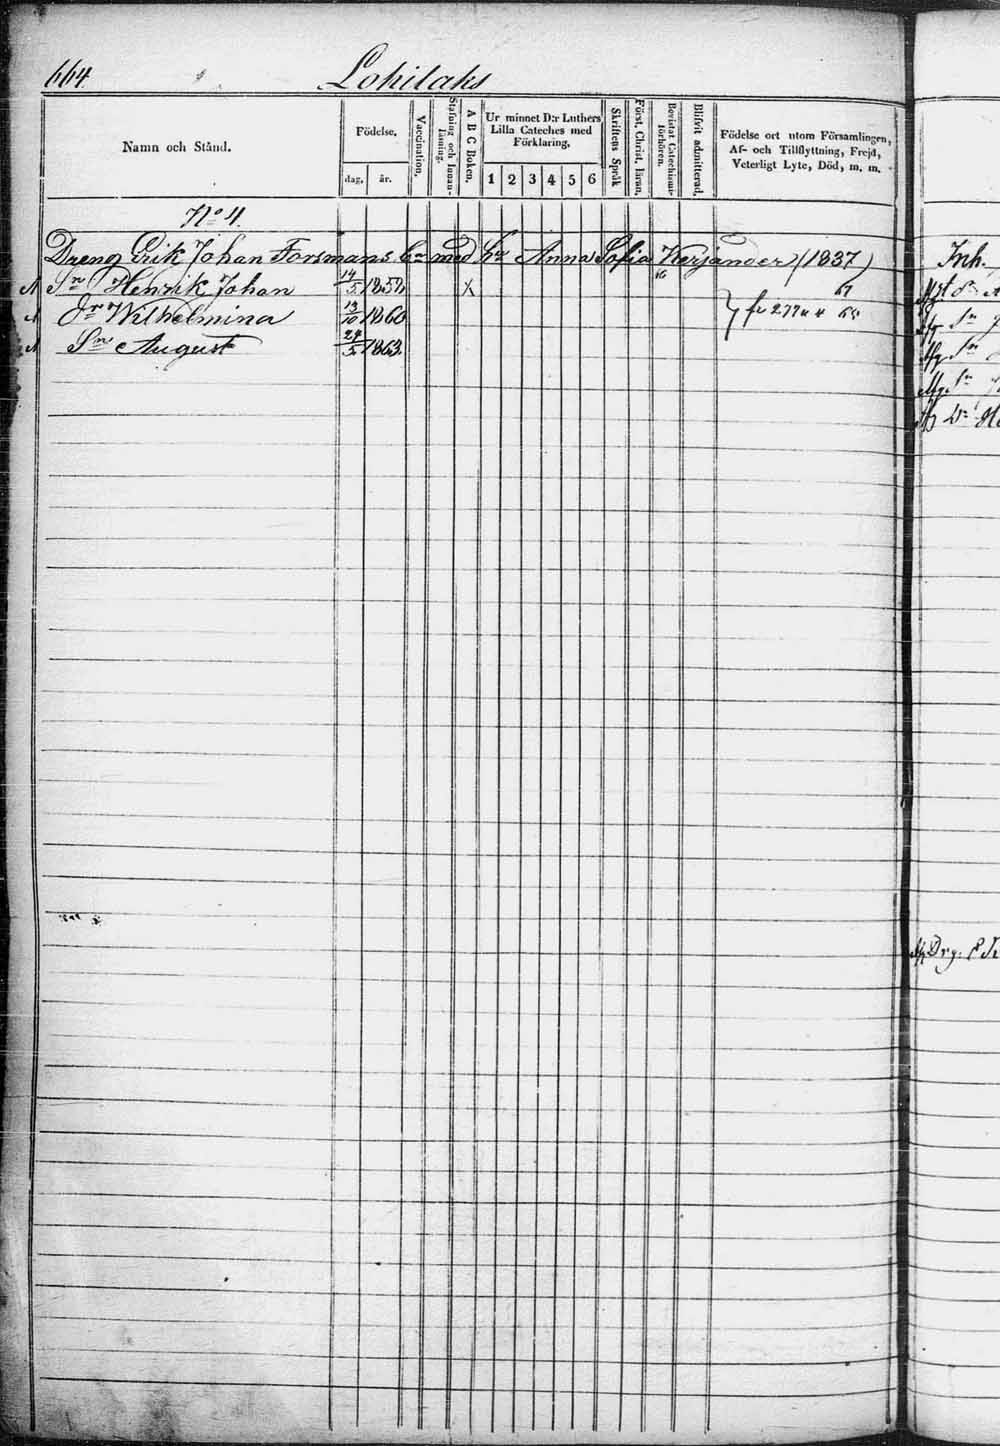 664. Lohilaks
Namn och Stånd.
Födelse,
dag, år.
Vaccination.
Stafning och Innan-läsning.
A B C Boken.
Ur minnet D:r Luthers
Lilla Cateches med
Förklaring,
1 2 3 4 5 6
Skriftens Språk
Först. Christ. läran.
Bevistat Catechismi-förhören.
Blifvit admitterad.
Födelse ort utom Församlingen,
Af- och Tillflyttning, Frejd,
Veterligt Lyte, Död, m. m.
No 4.
Dreng Erik Johan Forsmans bn med hu Anna Sofia Kerjander (1837)
Sn Henrik Johan 14/5 1858 X
Dr Wilhelmina 13/10 1860
Sn August 24/5 1863.
Inh.
Sn
Sn
Sn
Dr
Drg.